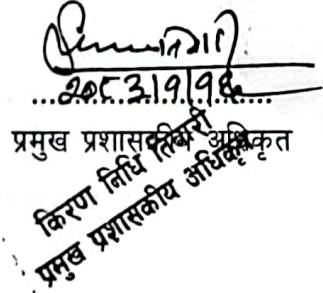 २०८३।१।१६
प्रमुख प्रशासकीय अधिकृत
किरण निधि तिवारी
प्रमुख प्रशासकीय अधिकृत